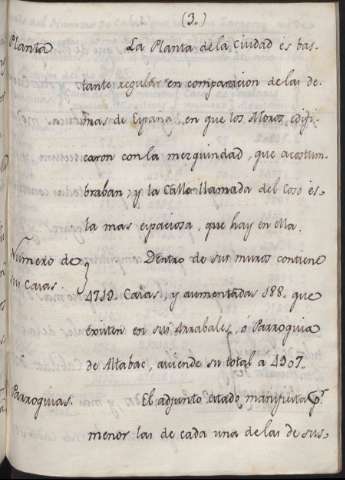 (3.)
Planta
La Planta de la Ciudad es bas-
tante regular en comparacion de las de-
mas de España, en que los Moros, edifi-
caron con la mezquindad, que acostum-
braban; y la Calle llamada del Coso es-
ta mas espaciosa, que hay en ella.
Número de
sus Casas.
Dentro de sus muros contiene
4719. Casas, y aumentadas 188. que
existen en sus Arrabales, ó Parroquia
de Altabas, asciende su total a 4907.
Parroquias.
El adjunto estado manifiesta pr.
menor las de cada una de las de sus-